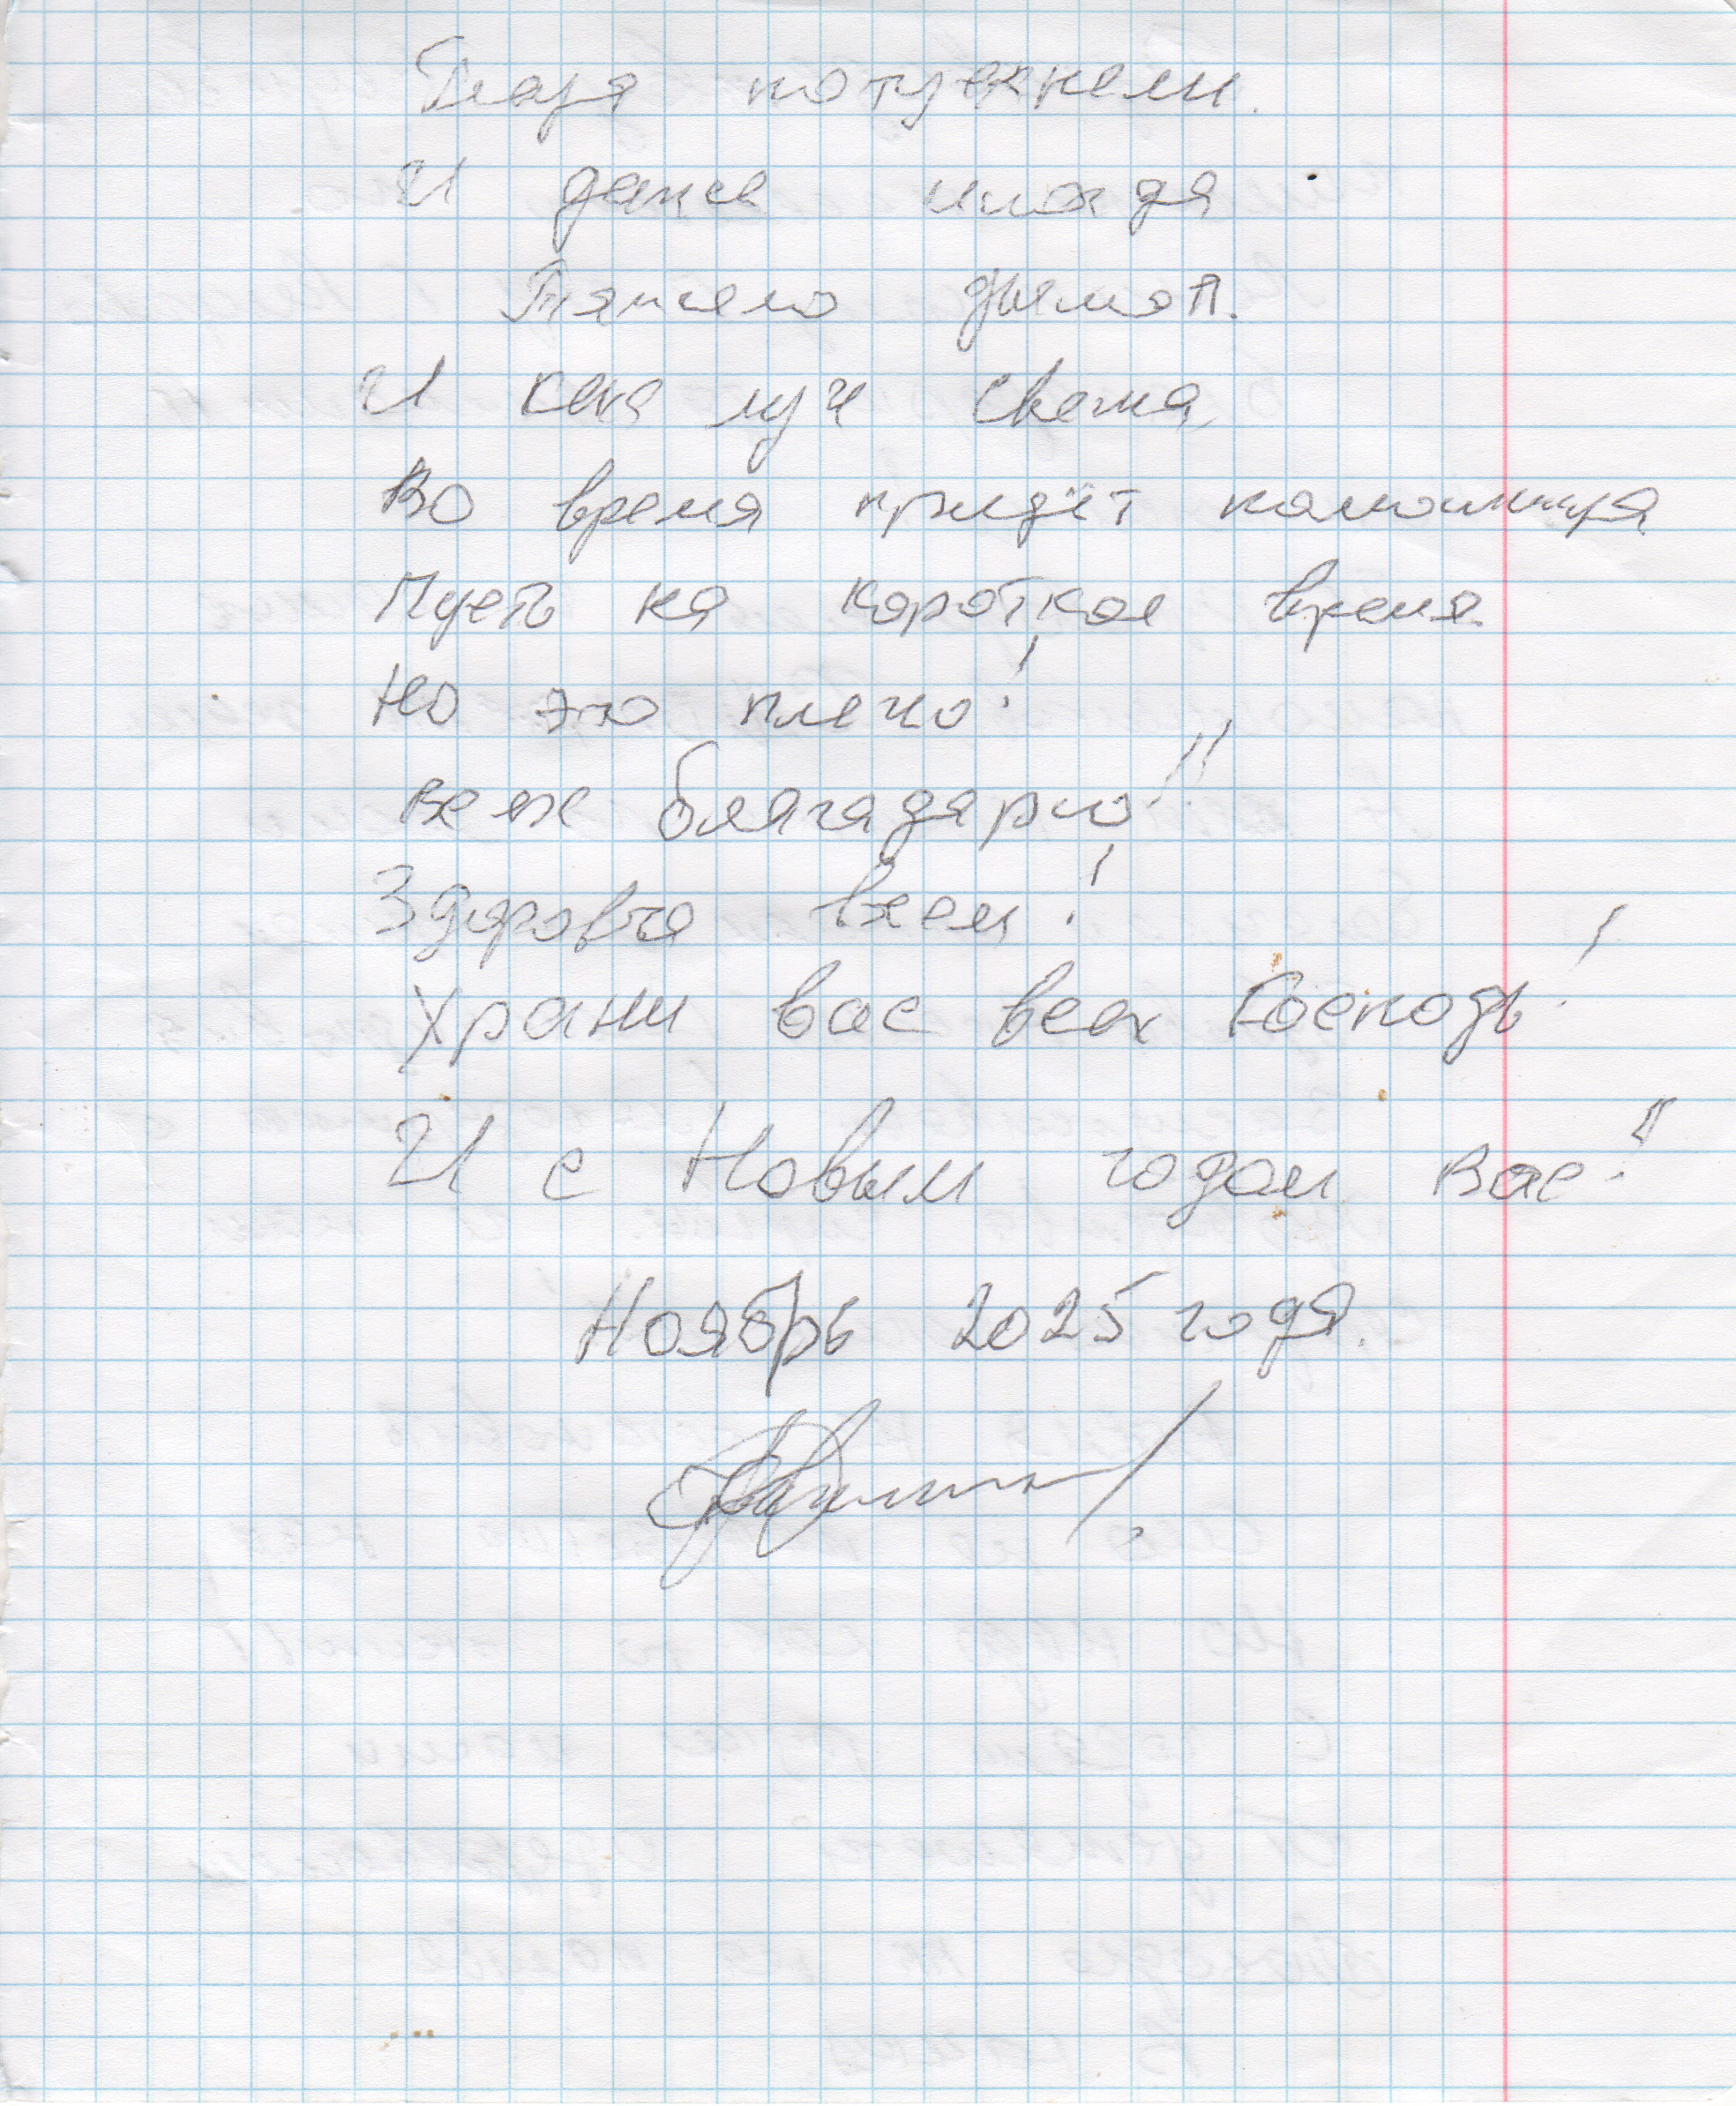 Глаза потускнели.
И даже иногда
Тяжело дышат.
И как луч света,
Во время придёт помощница
Пусть на короткое время.
Но это плечо!
всех благадарю!!
Здоровья всем!
Храни вас всех Господь!
И с Новым годом Вас!!
Ноябрь 2025 года.